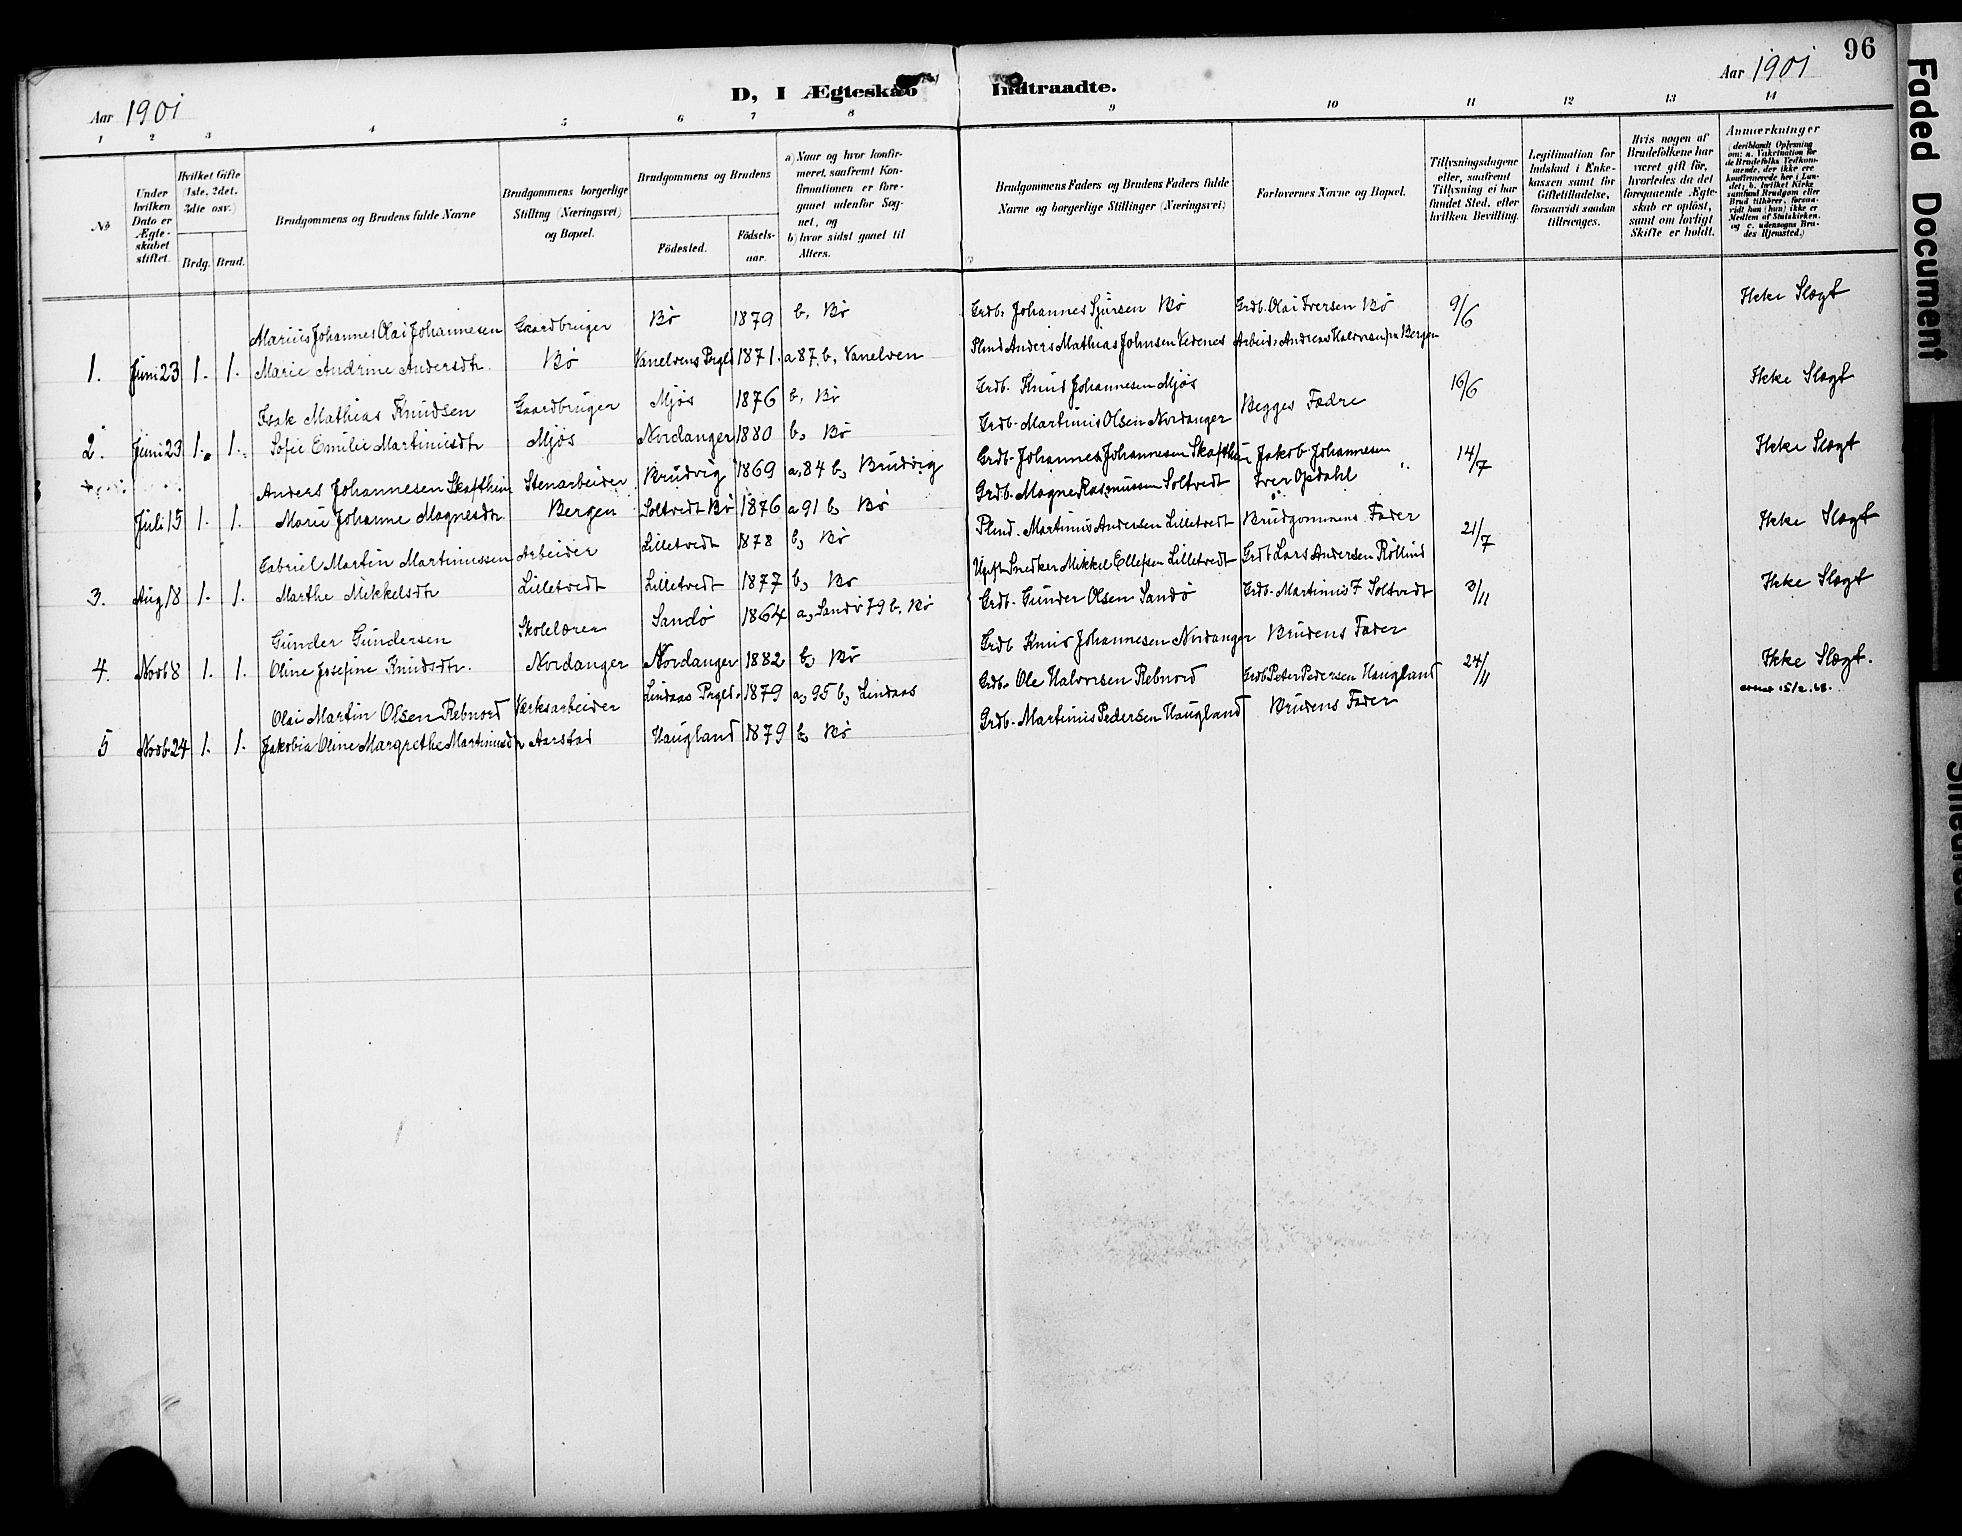 96
Aar 1901
D, I Ægteskab Indtraadte.
Aar 1901
1 2 3 4 5 6 7 8 9 10 11 12 13 14
No
Under hvilken Dato er Ægteskabet stiftet.
Hvilket Gifte (1ste. 2det. 3die osv.)
Brdg. Brud.
Brudgommens og Brudens fulde Navne
Brudgommens borgerlige Stilling (Næringsvei) og Bopæl.
Brudgommens og Brudens
Födested.
Födselsaar.
a) Naar og hvor konfirmeret, saafremt Konfirmationen er foregaaet udenfor Sognet, og
b) hvor sidst gaaet til Alters.
Brudgommens Faders og Brudens Faders fulde Navne og borgerlige Stillinger (Næringsvei)
Forlovernes Navne og Bopæl.
Tillysningsdagene eller, saafremt Tillysning ei har fundet Sted, efter hvilken Bevilling.
Legitimation for Indskud i Enkekassen samt for Giftetilladelse, forsaavidt saadan tiltrænges.
Hvis nogen af Brudefolkene har været gift för, hvorledes da det foregaaende Ægteskab er oplöst, samt om lovligt Skifte er holdt.
Anmerkninger
(deriblandt Oplysning om: a. Vakcination for de Brudefolks Vedkommende, der ikke ere konfirmerede her i Landet; b. hvilket Kirkesamfund Brudgom eller Brud tilhörer, forsaavidt han (hun) ikke er Medlem af Statskirken, og c. udensogns Brudes Hjemsted.)
Marius Johannes Olai Johannesen Gaardbruger Bø 1879 b, Bø Grdb. Johannes Sjursen Bø Grdb. Olai Iversen Bø 9/6 Ikke Slægt
1. Juni 23 1. 1. Marie Andrine Andersdtr. Bø Vanelvens Prgld 1871. a 87. b, Vanelven Plmd Anders Mathias Johnsen Vedenes Arbeid. Andreas Halvorsen fra Bergen
Isak Mathias Knudsen Gaardbruger Mjøs 1876 b, Bø Grdb. Knud Johannesen Mjøs Begges Fædre 16/6 Ikke Slægt
2. Juni 23 1. 1. Sofie Emilie Martinusdtr Mjøs Nordanger 1880 b, Bø Grdb. Martinus Olsen Nordanger
Anders Johannesen Skafthun Stenarbeider Brudvig 1869 a, 84 b, Brudvig Grdb. Johannes Johannesen Skafthun Jakob Johannesen 14/7 Ikke Slægt
Juli 15 1. 1. Marie Johanne Magnesdtr. Bergen Soltvedt Bø 1876 a 91 b, Bø Grdb. Magne Rasmussen Soltvedt Iver Opdahl
Gabriel Martin Martinussen Arbeider Lilletvedt 1878 b, Bø Plmd. Martinus Andersen Lilletvedt Brudgommens Fader 21/7 Ikke Slægt
3. Aug 18 1. 1. Marthe Mikkelsdtr Lilletvedt Lilletvedt 1877 b, Bø Ugift Snedker Mikkel Ellefsen Lilletvedt Grdb Lars Andersen Røllind
Gunder Gundersen Skolelærer Sandø 1864 a, Sandø 79 b, Bø Grdb. Gunder Olsen Sandø Grdb. Martinus F Soltvedt 3/11 Ikke Slægt
4. Novb 8 1. 1. Oline Josefine Knudsdtr. Nordanger Nordanger 1882 b, Bø Grdb Knud Johannesen Nordanger Brudens Fader
Olai Martin Olsen Rebnord Værksarbeider Lindaas Prgld. 1879 a, 95 b, Lindaas Grdb. Ole Halvorsen Rebnord Grdb Peter Pedersen Haugland 24/11 Ikke Slægt.
5 Novb. 24 1. 1. Jakobia Oline Margrethe Martinusdtr Aarstad Haugland 1879 b, Bø Grdb. Martinus Pedersen Haugland Brudens Fader
15/2.68.
Faded Document